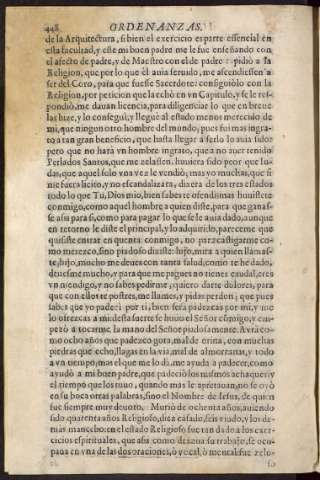 448 ORDENANZAS.
de la Arquitectura, si bien el exercicio es parte essencial en
esta facultad, y este mi buen padre me le fue enseñando con
el afecto de padre, y de Maestro con el de padre: pidió a la
Religion, que por lo que él auia seruido, me ascendiessen a
ser del Coro, para que fuesse Sacerdote: consiguiólo con la
Religion, por peticion que la echó en vn Capitulo, y se le res-
pondió, me dauan licencia, para diligenciar lo que en breue
las hize, y lo conseguì, y lleguè al estado menos merecido de
mi, que ningun otro hombre del mundo, pues fui mas ingra-
to a tan gran beneficio, que hasta llegar a serlo lo auia sido:
pero que no hará vn hombre ingrato, que a no auer tenido
Perlados Santos, que me zelassen, huuiera sido peor que Iu-
das, que aquel solo vna vez le vendió; mas yo muchas, que si
me fuera licito, y no escandalizara, dixera de los tres estados
todo lo que Tu, Dios mio, bien sabes te ofendi; mas huuiste
conmigo, como aquel hombre a quien diste, para que ganas-
se assi para si, como para pagar lo que se le auia dado, aunque
en retorno le diste el principal, y lo adquirido, pareceme que
quisiste entrar en quenta conmigo, no para castigarme co-
mo merezco, sino piadoso diziste: hijo, mira a quien llamas-
te, hijo, mucho me deues con tanta salud, como te he dado,
deuesme mucho, y para que me pagues no tienes caudal, eres
vn mendigo, y no sabes pedirme, quiero darte dolores, para
que con ellos te postres, me llames, y pidas perdon; que pues
sabes que yo padecí por ti, bien será padezcas por mi, y me
lo ofrezcas a mi: desta suerte se huuo el Señor conmigo, y em-
peçó a tocarme la mano del Señor piadosamente. Aurà co-
mo ocho años que padezco gota, mal de orina, con muchas
piedras que echo, llagas en la via, mal de almorranas, y todo
a vn tiempo, mas el que me lo dá, me ayuda a padecer, como
ayudó a mi buen padre, que padeció los mismos achaques: y
el tiempo que los tuuo, quando mas le apretauan, no se oyó
en su boca otras palabras, sino el Nombre de Iesus, de quien
fue siempre muy deuoto. Murió de ochenta años, auiendo
sido quarenta años Religioso, diez casado, seis viudo, y los de-
mas mancebo: en el estado Religioso fue tan dado a los exer-
cicios espirituales, que assi como dexaua su trabajo, se ocu-
paua en vna de las dos oraciones, ó vocal, ó mental: fue zelo-
so